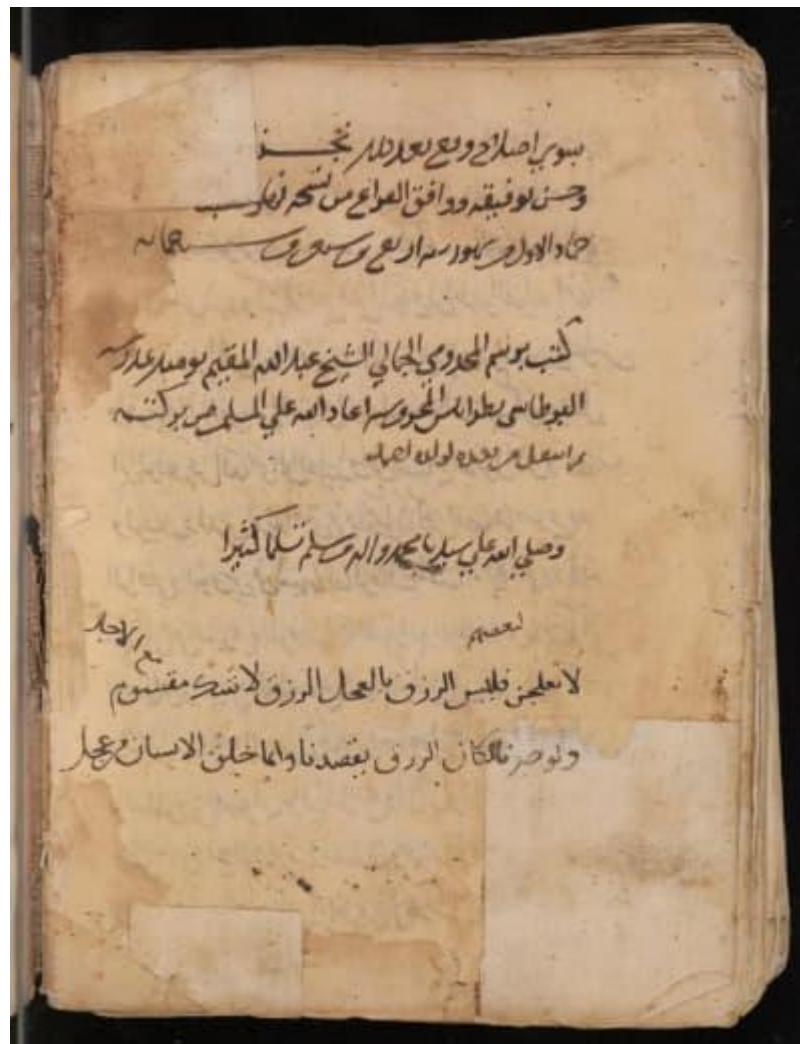 سوى اصلاح وقع بعد ذلك نجز
وحسن توفيقه ووافق الفراغ من نسخه نهار
جماد الاول من شهور سنه اربع وسبعين وسبعمايه
كتب برسم المخدومي الجمالي الشيخ عبد الله المقيم يوميذ بمدرسة
البرطاسي بطرابلس المحروسه اعاد الله علي المسلمين من بركته
ثم انتقل من بعده لولده احمد
وصلي الله علي سيدنا محمد واله وسلم تسليما كثيرا
لبعضهم
لا تعجلن فليس الرزق بالعجل الرزق لا شك مقسوم مع الاجل
ولو صبرنا لكان الرزق يقصدنا وانما خلق الانسان من عجل